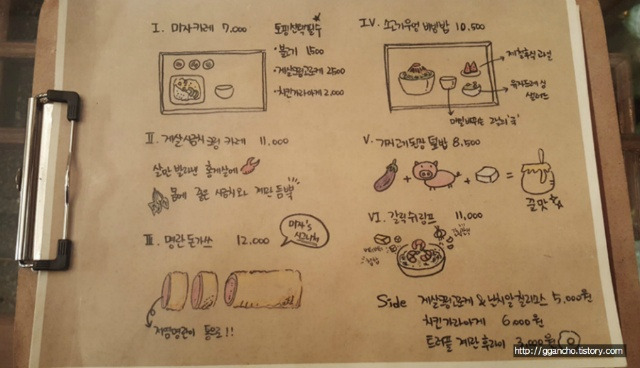 I. 미자카레 7,000
토핑선택필수
·불고기 1500
·게살크림고로케 2500
·치킨가라아게 2,000
II. 게살시금치크림 카레 11,000
살만 발라낸 홍게살에
몸에 좋은 시금치와 계란 듬뿍
III. 명란돈가쓰 12,000
미자's
시그니처
저염명란이 통으로!!
IV. 소고기우엉비빔밥 10,500
제철후식과일
유자드레싱
샐러드
매일바뀌는 오늘의 "국"
V. 가지고기된장덮밥 8,500
꿀맛
VI. 갈릭쉬림프 11,000
Side 게살크림고로케 & 난치알칠리소스 5,000원
치킨가라아게 6,000원
트러플 계란 후라이 3,000원
http://ggancho.tistory.com